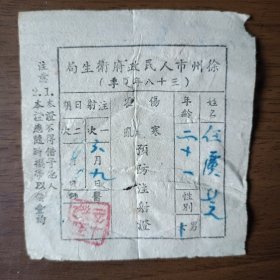 徐州市人民政府衛生局
（三十八年夏季）
姓名 任廣
年齡 二十一 性別 男
傷寒
霍亂
預防注射證
注射日期
一次 六月九日
二次 月 日
注意
1.本證不得借予他人
2.本證應隨時攜帶以備查